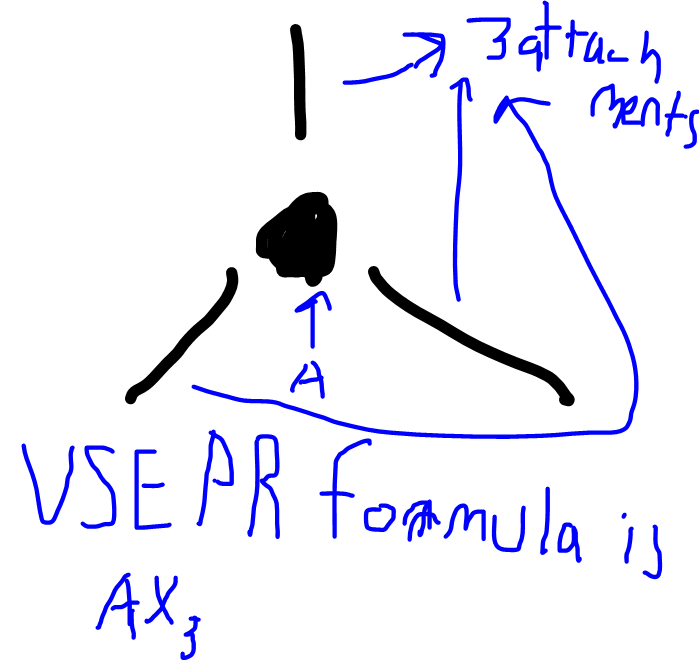 3 attach
ments
A
VSEPR formula is
AX₃